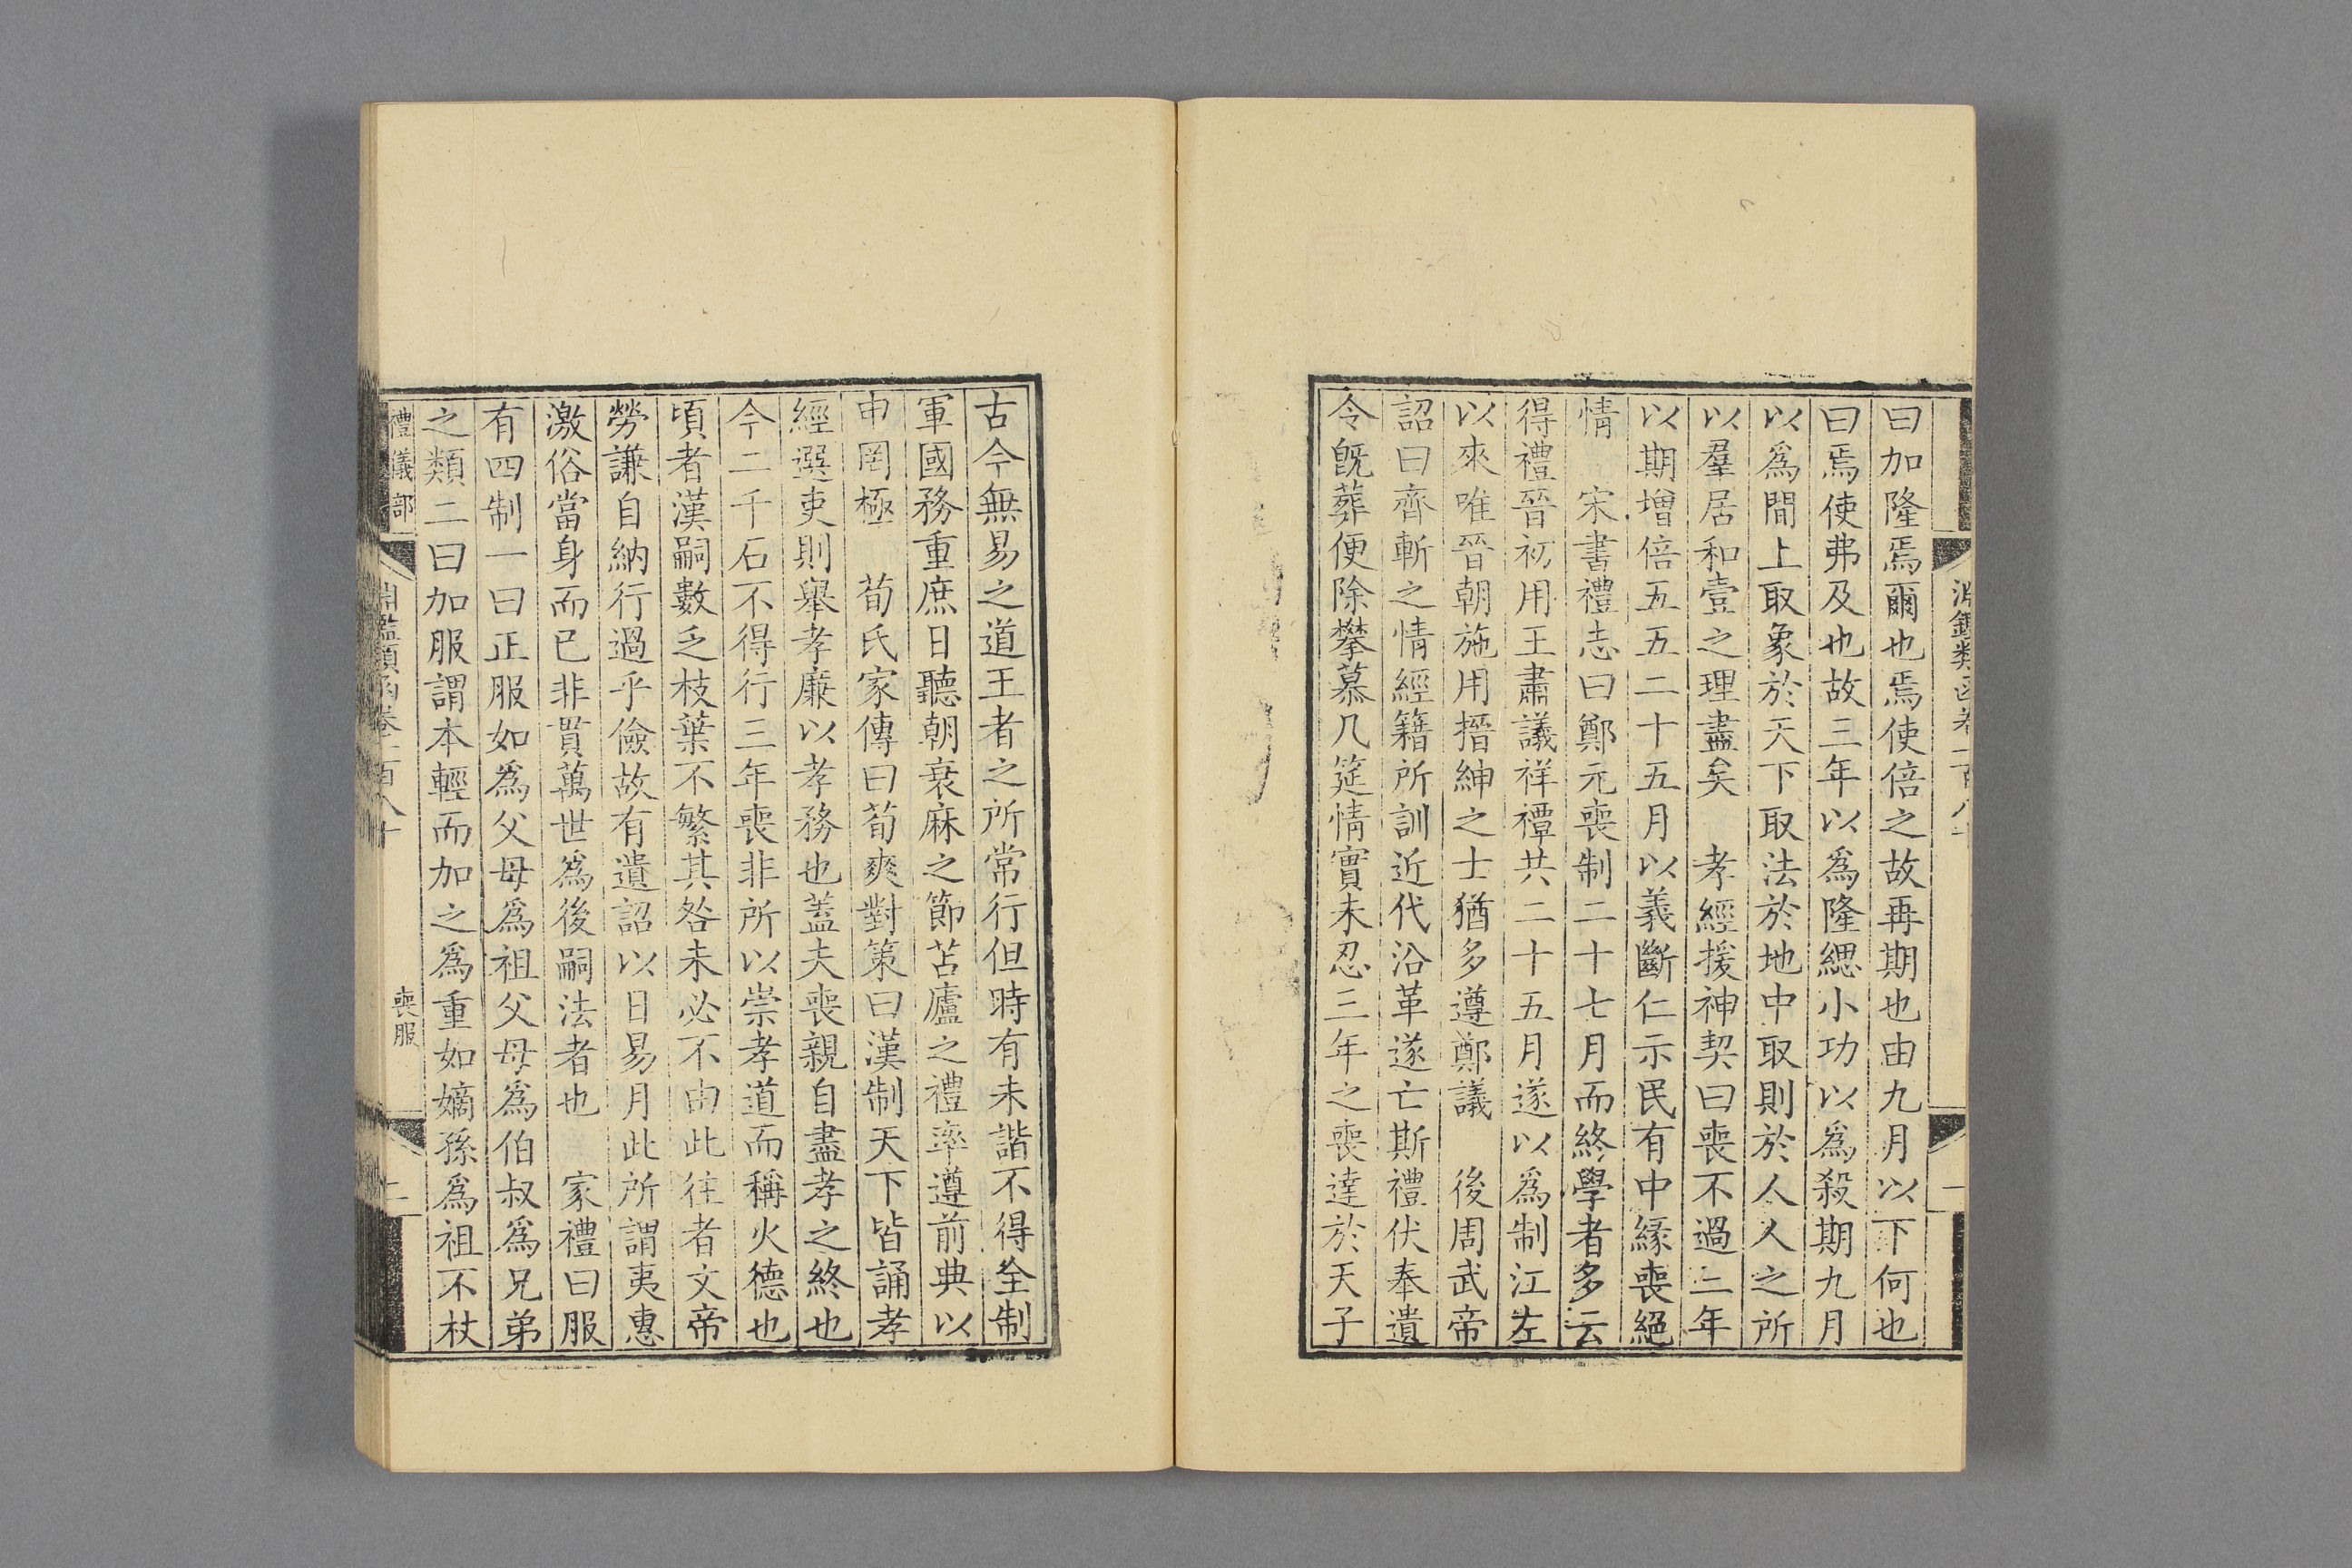 曰加隆焉爾也焉使倍之故再期也由九月以下何也
曰焉使弗及也故三年以爲隆緦小功以爲殺期九月
以爲間上取象於天下取法於地中取則於人人之所
以羣居和壹之理盡矣　孝經援神契曰喪不過三年
以期增倍五五二十五月以義斷仁示民有中緣喪絕
情　宋書禮志曰鄭元喪制二十七月而終學者多云
得禮晉初用王肅議祥禫共二十五月遂以爲制江左
以來唯晉朝施用搢紳之士猶多遵鄭議　後周武帝
詔曰齊斬之情經籍所訓近代沿革遂亡斯禮伏奉遺
令旣葬便除攀慕几筵情實未忍三年之喪達於天子
古今無易之道王者之所常行但時有未諧不得全制
軍國務重庶日聽朝衰麻之節苫廬之禮率遵前典以
申罔極　荀氏家傳曰荀爽對策曰漢制天下皆誦孝
經選吏則舉孝廉以孝務也蓋夫喪親自盡孝之終也
今二千石不得行三年喪非所以崇孝道而稱火德也
頃者漢嗣數乏枝葉不繁其咎未必不由此往者文帝
勞謙自納行過乎儉故有遺詔以日易月此所謂夷惠
激俗當身而已非貫萬世爲後嗣法者也　家禮曰服
有四制一曰正服如爲父母爲祖父母爲伯叔爲兄弟
之類二曰加服謂本輕而加之爲重如嫡孫爲祖不杖
禮儀部　淵鑑類函卷一百八十　喪服　二